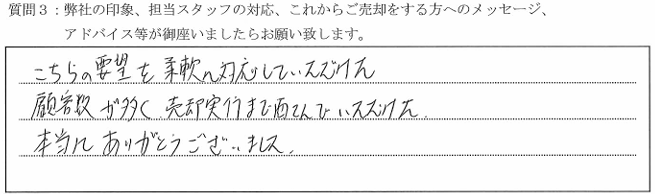 質問３：弊社の印象、担当スタッフの対応、これからご売却をする方へのメッセージ、
アドバイス等が御座いましたらお願い致します。
こちらの要望を柔軟に対応していただけた
顧客数が多く、売却実行まで進んでいただけた。
本当にありがとうございました。